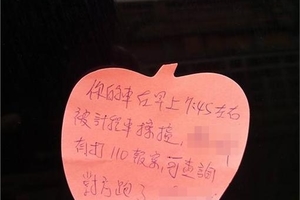 你的車在早上7:45左右
被計程車擦撞,
有打110報案,可查詢
對方跑了